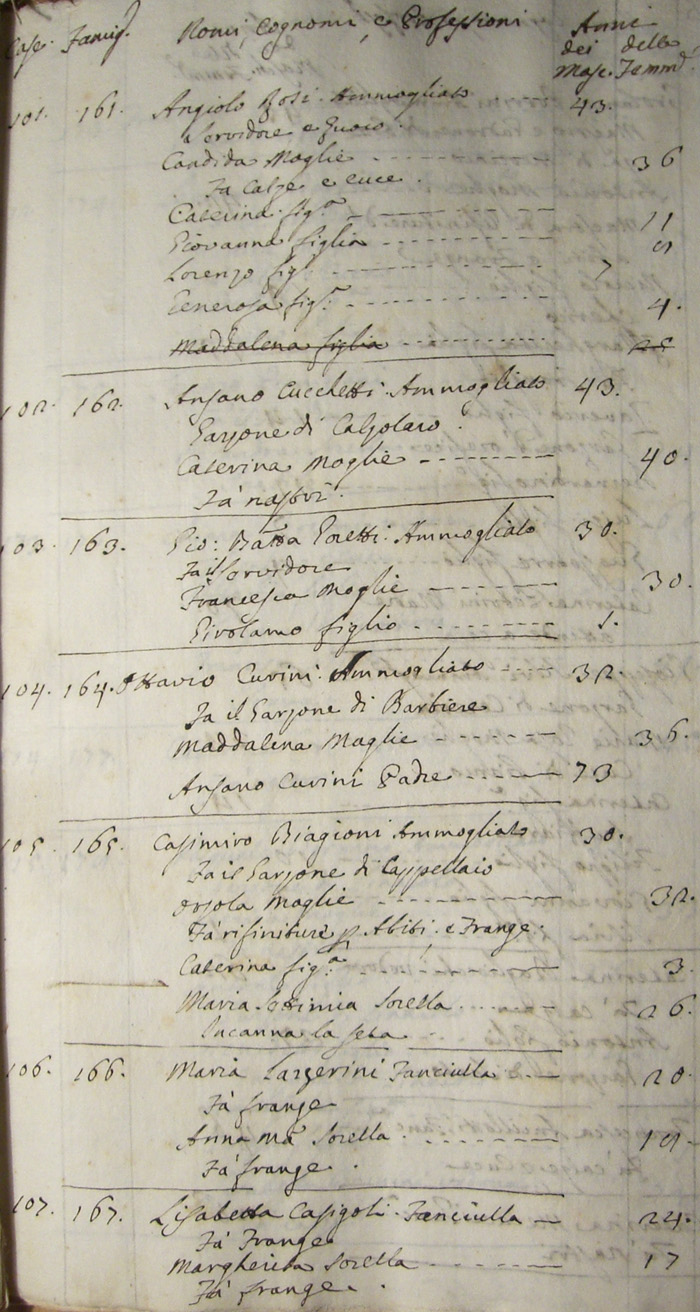 Case. Famig. Nomi, Cognomi, e Professioni Anni
dei delle
Masc. Femm.
101. 161. Angiolo Rosi Ammogliato 43.
Servidore e Cuoco.
Candida Moglie 36
Fa Calze e cuce.
Caterina fig.a 11
Giovanna figlia 9
Lorenzo fig.o 7
Generosa fig.a 4.
Maddalena figlia
102. 162. Ansano Cucchetti Ammogliato 43.
Garzone di Calzolaro
Caterina Moglie 40.
Fa' nastri.
103. 163. Gio: Batta Poretti Ammogliato 30.
Fa il Servidore
Francesca Moglie 30.
Girolamo figlio 1.
104. 164. Ottavio Curini Ammogliato 32.
Fa il Garzone di Barbiere
Maddalena Moglie 36.
Ansano Curini Padre 73
105. 165. Casimiro Biagioni Ammogliato 30.
Fa il Garzone di Cappellaio
Orsola Moglie 32.
Fa' rifiniture p. Abiti, e Frange.
Caterina fig.a 3.
Maria Settimia Sorella 26.
Incanna la seta
106. 166. Maria Lazzerini Fanciulla 20.
Fa' frange
Anna Ma. Sorella 19.
Fa' frange.
107. 167. Lisabetta Casigoli Fanciulla 24.
Fa' Frange
Margherita Sorella 17
Fa' frange.